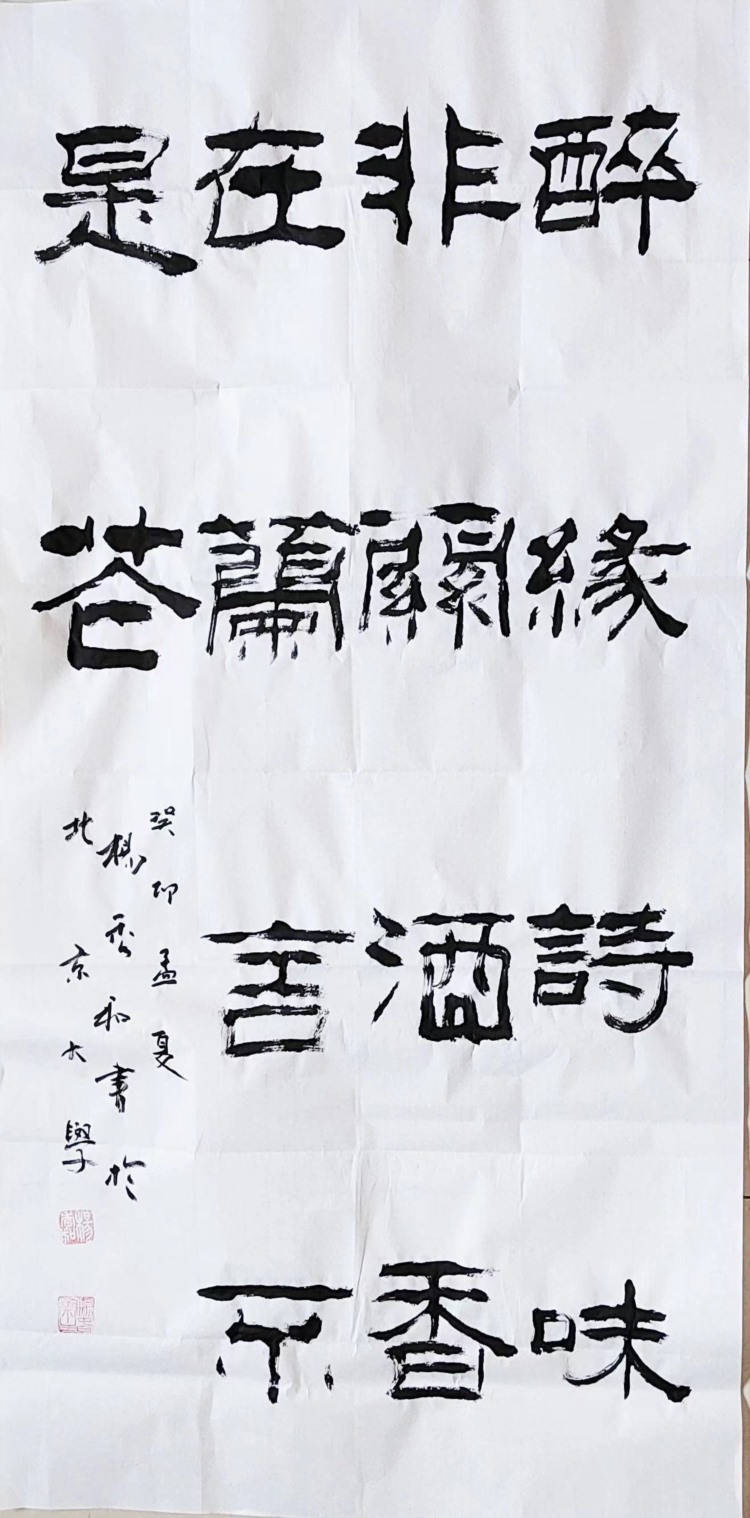 醉緣詩味
非關酒香
在蘭言不
是花
癸卯孟夏
楊和書於
北京大學